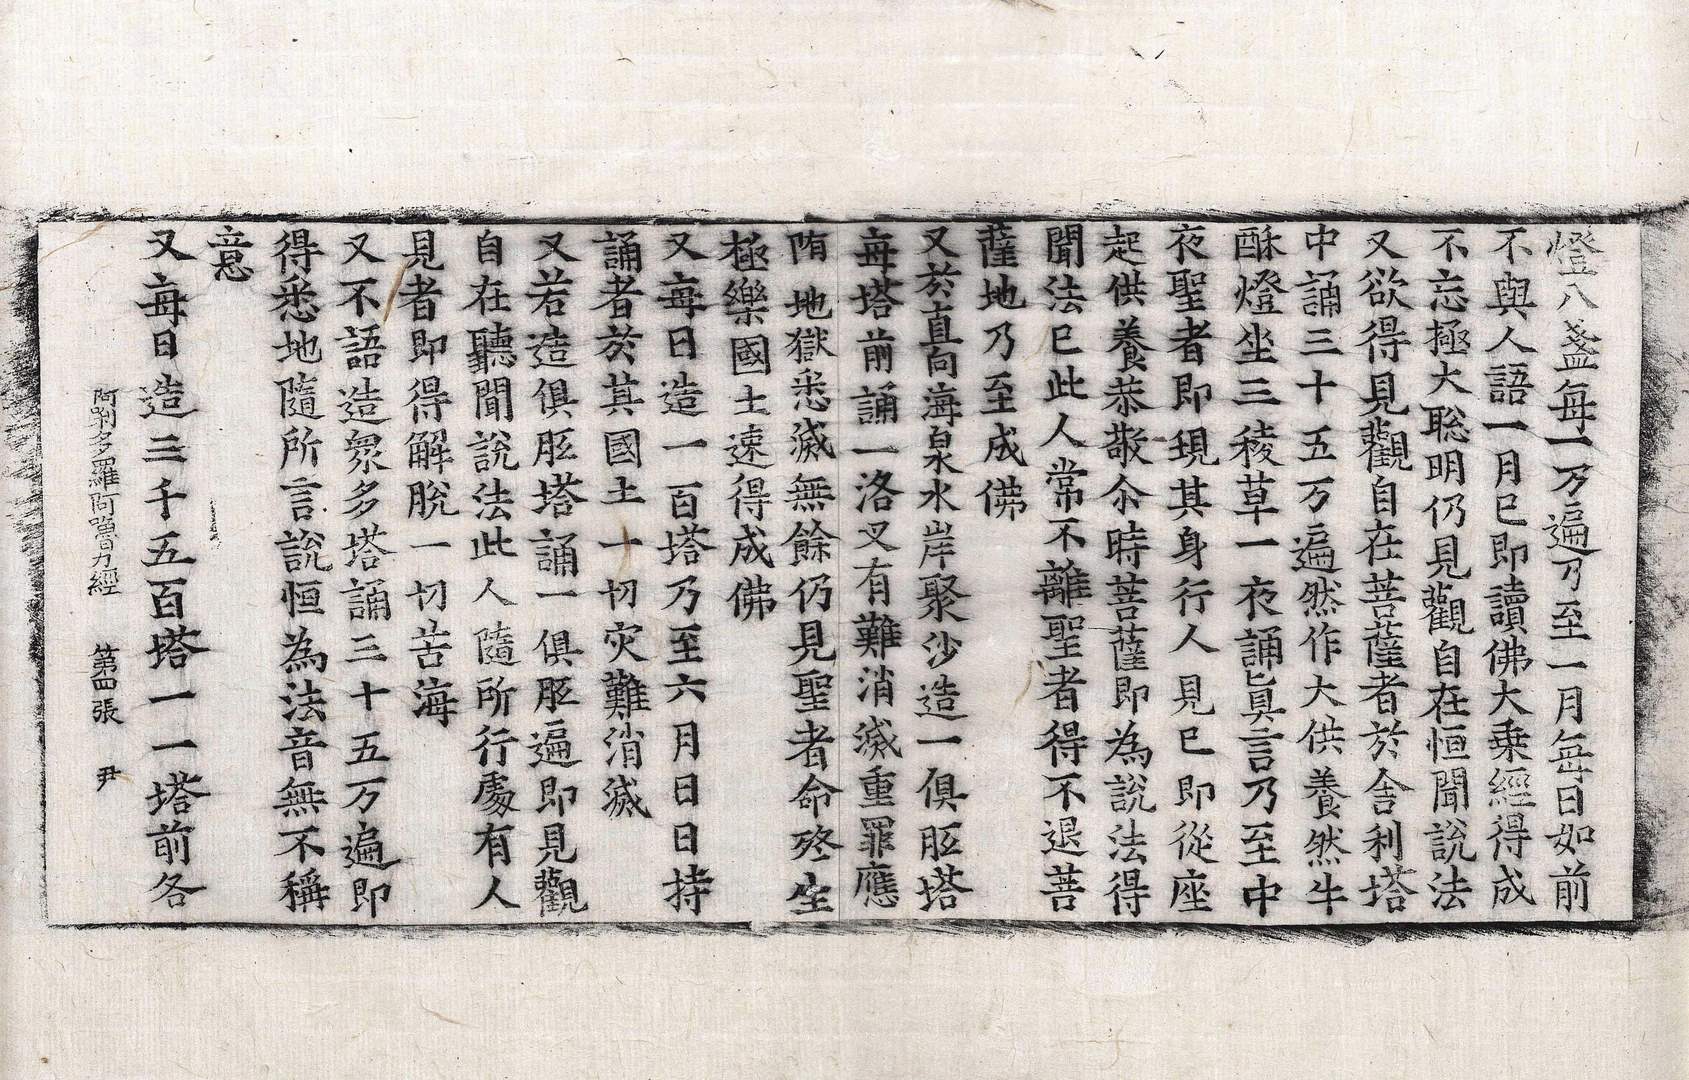 燈八盞每一万遍乃至一月每日如前
不與人語一月已即讀佛大乗經得成
不忘極大聡明仍見觀自在恒聞說法
又欲得見觀自在菩薩者於舍利塔
中誦三十五万遍然作大供養然牛
酥燈坐三稜草一夜誦眞言乃至中
夜聖者即現其身行人見已即從座
起供養恭敬尒時菩薩即為説法得
聞法已此人常不離聖者得不退菩
薩地乃至成佛
又於直向海泉水岸聚沙造一俱胝塔
每塔前誦一洛叉有難消滅重罪應
墮地獄悉滅無餘仍見聖者命終生
極樂國土速得成佛
又每日造一百塔乃至六月日日持
誦者於其國土一切灾難消滅
又若造俱胝塔誦一俱胝遍即見觀
自在聽聞説法此人隨所行處有人
見者即得解脫一切苦海
又不語造衆多塔誦三十五万遍即
得悉地隨所言說恒為法音無不稱
意
又每日造三千五百塔一一塔前各
阿唎多羅阿嚕力經　第四張　尹